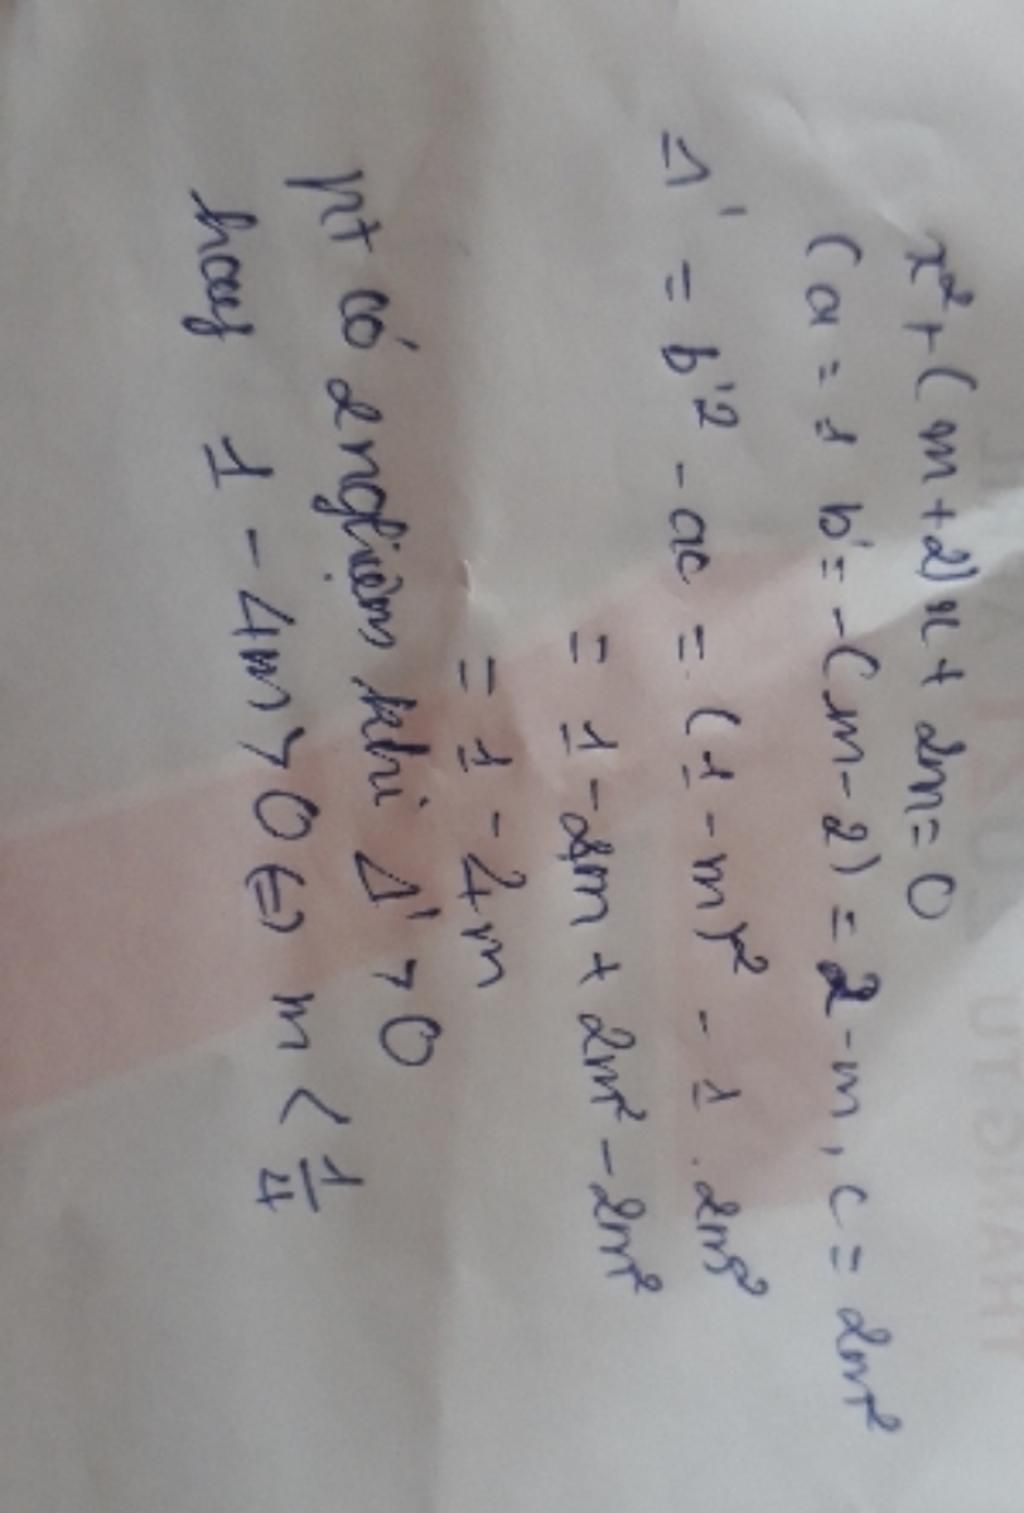 x² + (m+2)x + 2m = 0
(a = 1 b' = -(m-2) = 2-m, c = 2m²
Δ' = b'² - ac = (1-m)² - 1.2m²
= 1 - 2m + 2m² - 2m²
= 1 - 4m
pt có 2 nghiệm khi Δ' > 0
hay 1 - 4m > 0 ⇔ m < 1/4